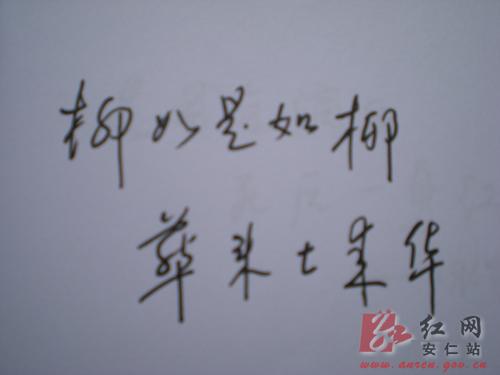 柳如是如柳
華来士来华
红网
安仁站
www.anrcn.gov.cn